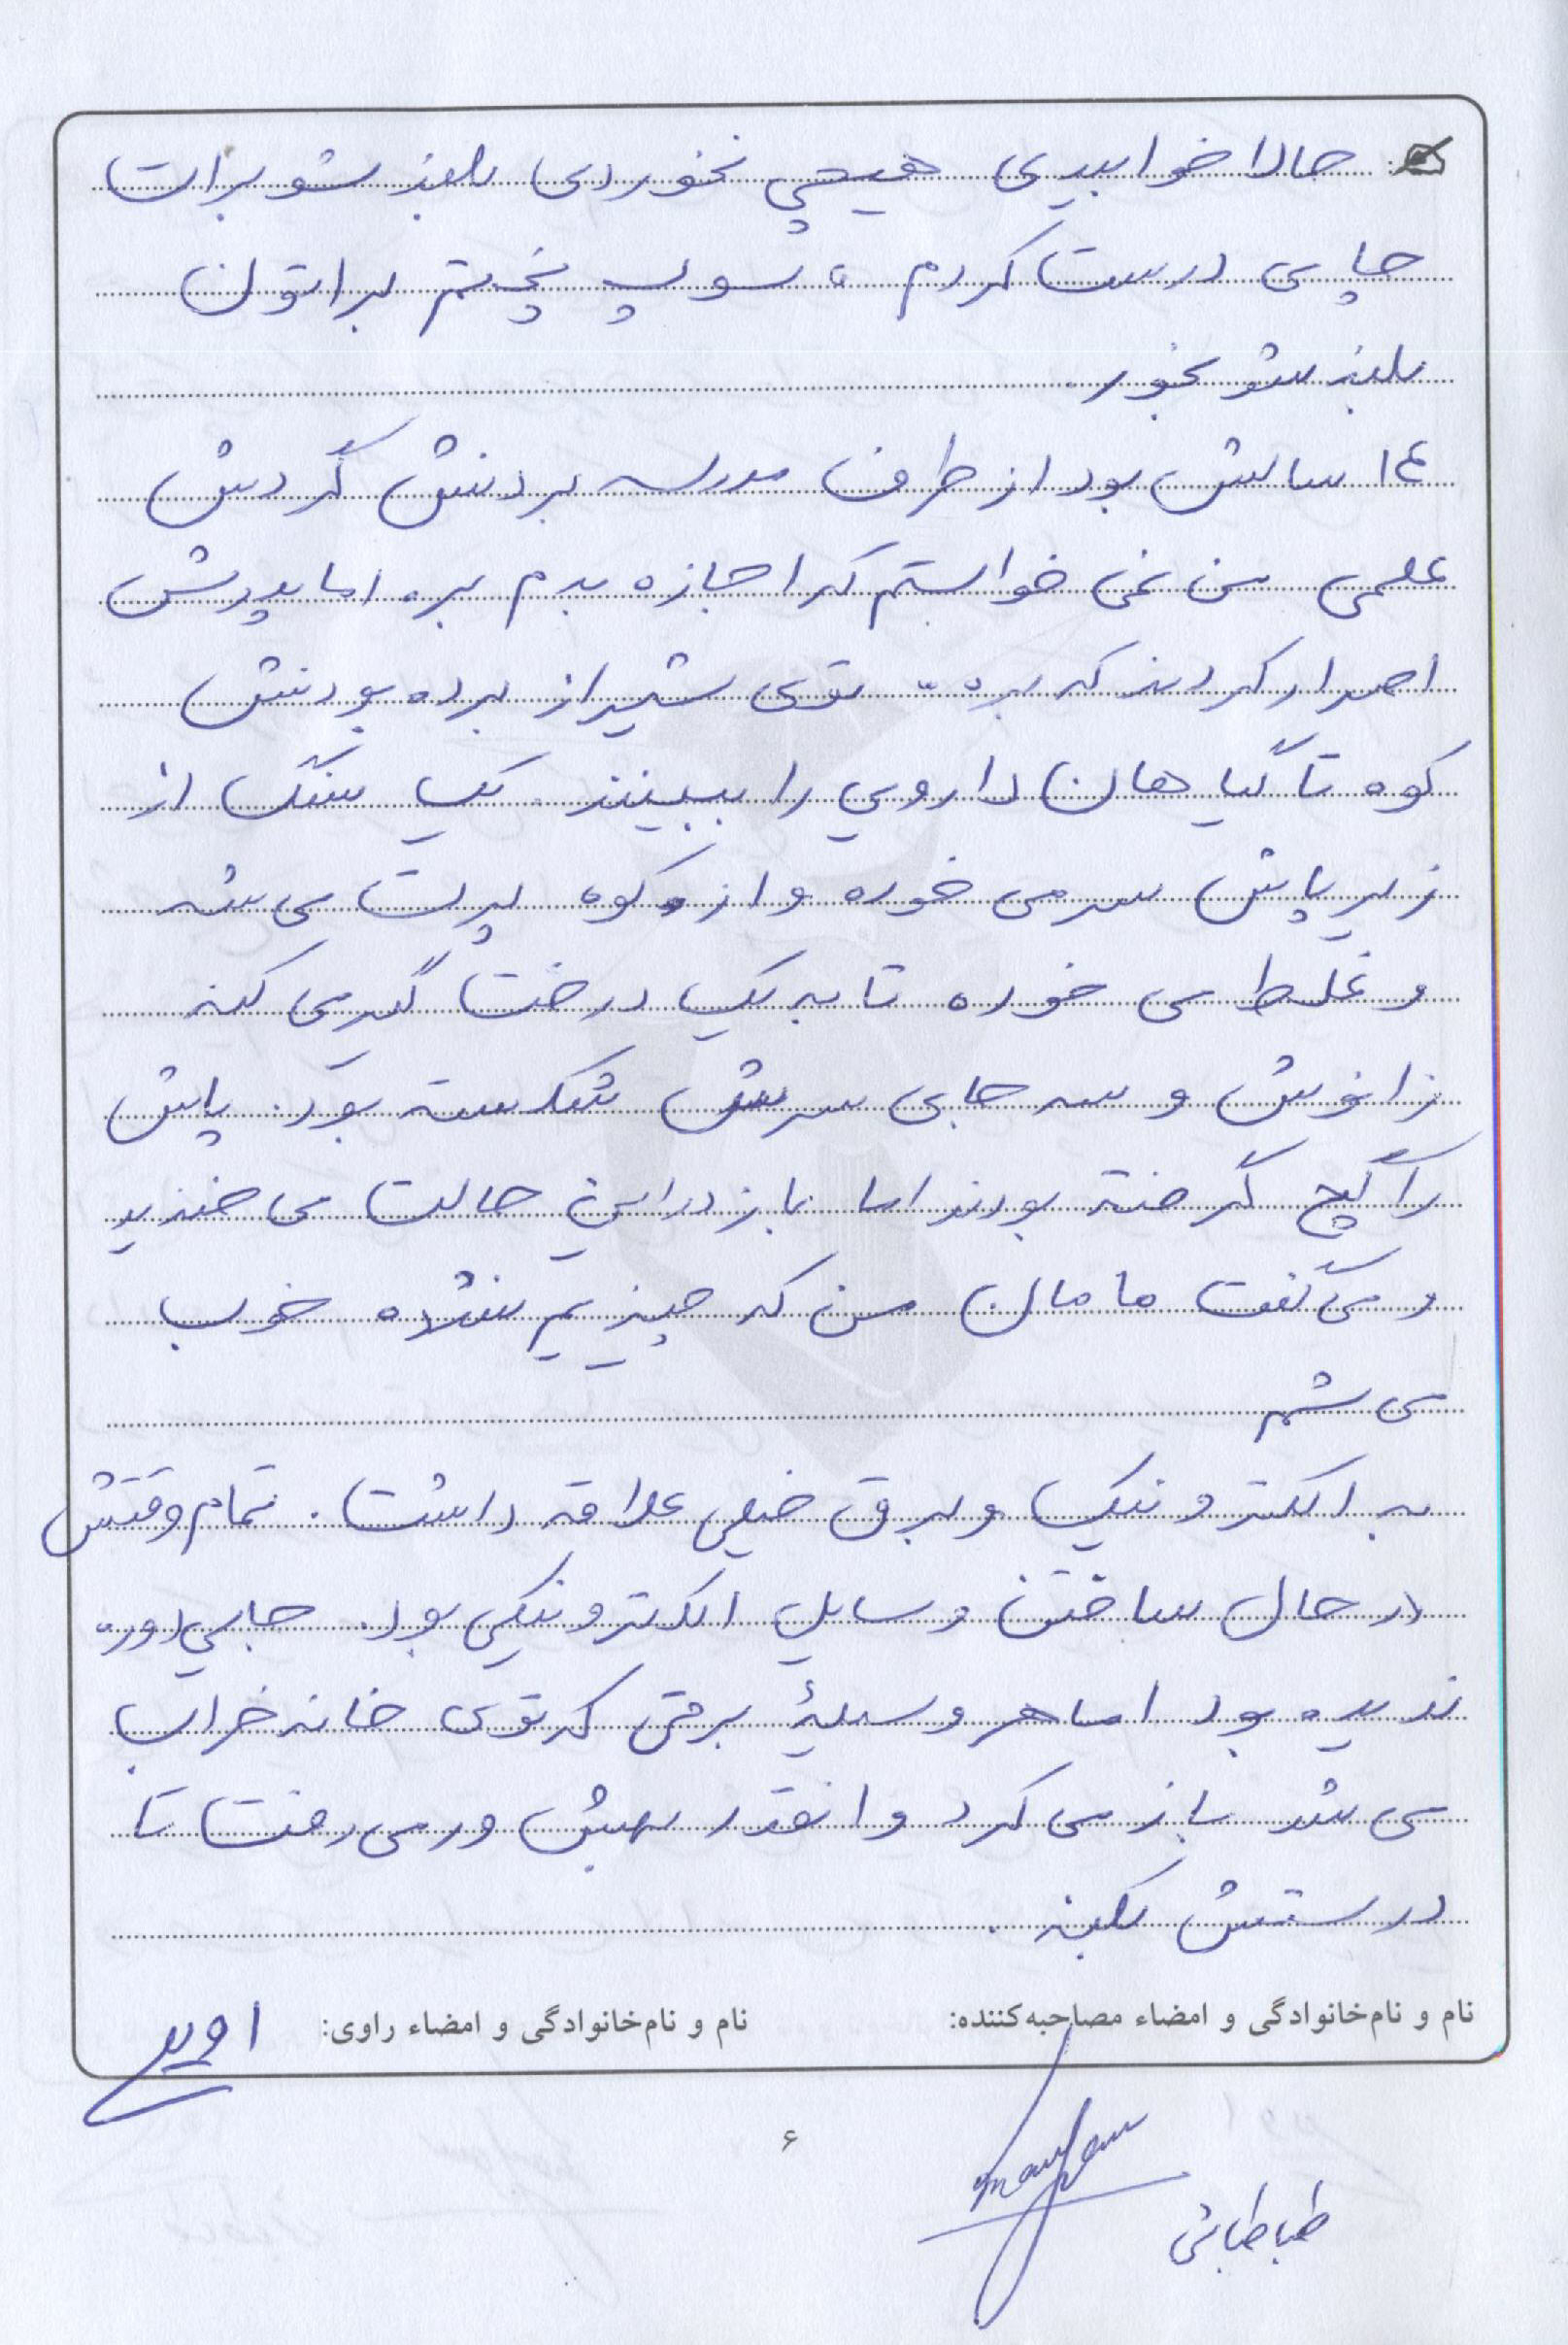 حالا خوابیدی هیچی نخوردی بلند شو برات
چایی درست کردم، سوپ پختم براتون
بلند شو بخور.
۱۴ سالش بود از طرف مدرسه بردنش گردش
علمی من نمی خواستم که اجازه بدم بره اما پدرش
اصرار کردند که بره. توی شیراز برده بودنش
کوه تا گیاهان دارویی را ببینند. یک سنگ از
زیر پاش سر می خوره و از کوه پرت می شه
و غلط می خوره تا به یک درخت گیر می کنه
زانوش و سه جای سرش شکسته بود. پاش
را گچ گرفته بودند اما باز در این حالت می خندید
و می گفت مامان من که چیزیم نشده خوب
می شم
به الکترونیک و برق خیلی علاقه داشت. تمام وقتش
در حال ساختن وسایل الکترونیکی بود. جایی دوره
ندیده بود اما هر وسیلهٔ برقی که توی خانه خراب
می شد باز می کرد و انقدر بهش ور می رفت تا
درستش بکنه.
نام و نام‌خانوادگی و امضاء مصاحبه‌کننده: نام و نام‌خانوادگی و امضاء راوی:
۶
maryam
طباطبائی